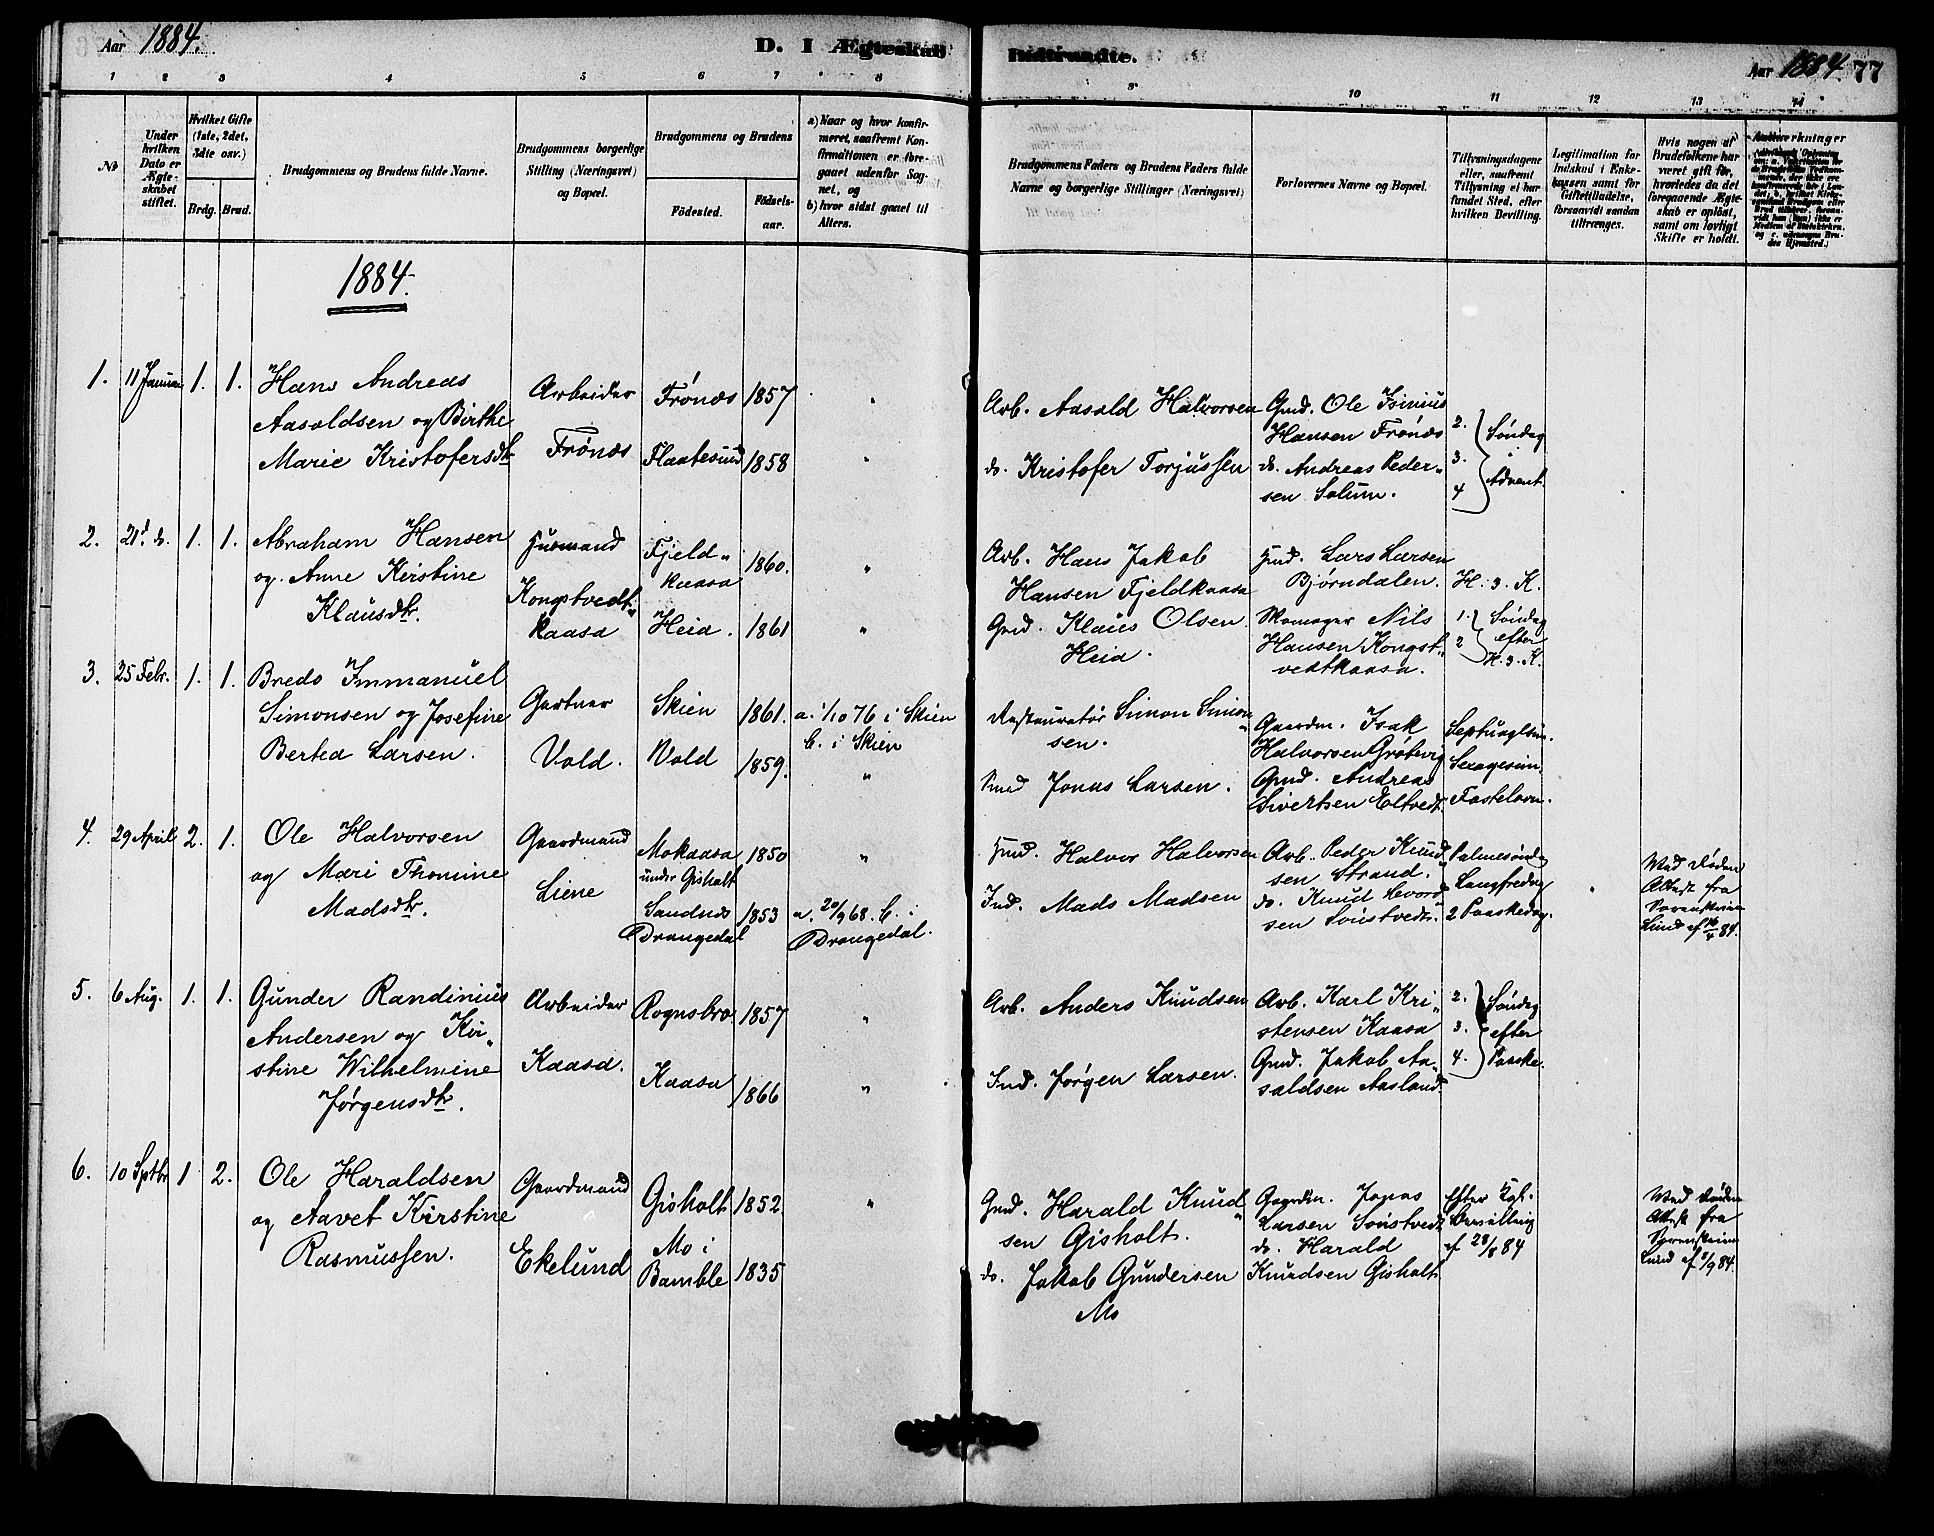 Aar 1884.
D. I Ægteskab Indtraadte.
Aar 1884. 77
1 2 3 4 5 6 7 8 9 10 11 12 13 14
No
Under hvilken Dato er Ægteskabet stiftet.
Hvilket Gifte (1ste, 2det, 3die osv.)
Brdg. Brud.
Brudgommens og Brudens fulde Navne.
Brudgommens borgerlige Stilling (Næringsvei) og Bopæl.
Brudgommens og Brudens
Födested.
Födsels-aar.
a) Naar og hvor konfirmeret, saafremt Konfirmationen er foregaaet udenfor Sognet, og
b) hvor sidst gaaet til Alters.
Brudgommens Faders og Brudens Faders fulde Navne og borgerlige Stillinger (Næringsvei)
Forlovernes Navne og Bopæl.
Tillysningsdagene eller, saafremt Tillysning ei har fundet Sted, efter hvilken Bevilling.
Legitimation for Indskud i Enkekassen samt for Giftetilladelse, forsaavidt saadan tiltrænges.
Hvis nogen af Brudefolkene har været gift för, hvorledes da det foregaaende Ægteskab er oplöst, samt om lovligt Skifte er holdt.
Anmerkninger
1884.
1. 11 Januar 1. 1. Hans Andreas
Aasoldsen og Birthe
Marie Kristofersdtr
Arbeider
Frönæs
Frönæs 1857 "
Flaatesund 1858 "
Arb. Aasold Halvorsen
do. Kristofer Torjussen
Gmd. Ole Isinius
Hansen Frönæs
do. Andreas Peder-
sen Solum.
2.
3.
4
Söndag
i
Advent.
2. 21d do. 1. 1. Abraham Hansen
og Anne Kirstine
Klausdtr.
Husmand
Kongstvedt-
kaasa
Fjeld-
kaasa 1860. "
Heia. 1861 "
Arb. Hans Jakob
Hansen Fjeldkaasa
Gmd. Klaus Olsen
Heia.
Hmd. Lars Larsen
Bjørndalen.
Skomager Nils
Hansen Kongst-
vedtkaasa.
H. 3. K.
1.
2
Söndag
efter
H. 3. K.
3. 25 Febr. 1. 1. Bredo Immanuel
Simonsen og Josefine
Bertea Larsen.
Gartner
Vold.
Skien 1861. a. 1/10 76 i Skien
b. i Skien
Vold 1859. "
Restauratör Simon Simon-
sen.
Smed Jonas Larsen.
Gaardm. Isak
Halvorsen Grötvig
Gmd. Andreas
Sivertsen Eltvedt.
Septuagesim.
Sexagesim.
Fastelavn.
4. 29 April 2. 1. Ole Halvorsen
og Mari Thomine
Madsdtr.
Gaardmand
Liene
Mokaasa
under Gisholt 1850 "
Sandnæs
Drangedal 1853 a. 20/9 68. b. i
Drangedal.
Hmd. Halvor Halvorsen
Ind. Mads Madsen
Arb. Peder Knud-
sen Strand.
do. Knud Levord-
sen Sönstvedt.
Palmesöndag
Langfredag
2 Paaskedag.
Ved Döden
Attest fra
Sorenskriver
Lund af 16/4 84.
5. 6 Aug. 1. 1. Gunder Randinius
Andersen og Kir-
stine Wilhelmine
Jørgensdtr.
Arbeider
Kaasa.
Rognsbro 1857 "
Kaasa 1866 "
Arb. Anders Knudsen
Ind. Jørgen Larsen.
Arb. Karl Kri-
stensen Kaasa
Gmd. Jakob Aa-
saldsen Aasland.
2.
3.
4.
Söndag
efter
Paaske.
6. 10 Sptbr 1 2. Ole Haraldsen
og Aavet Kirstine
Rasmussen.
Gaardmand
Ekelund
Gisholt 1852. "
Mo i
Bamble 1835
Gmd. Harald Knud-
sen Gisholt.
do. Jakob Gundersen
Mo
Gaardm. Jonas
Larsen Sönstvedt
do. Harald
Knudsen Gisholt
Efter Kgl.
Bevilling
af 28/8 84
Ved Döden
Attest fra
Sorenskriver
Lund af 8/9 84.